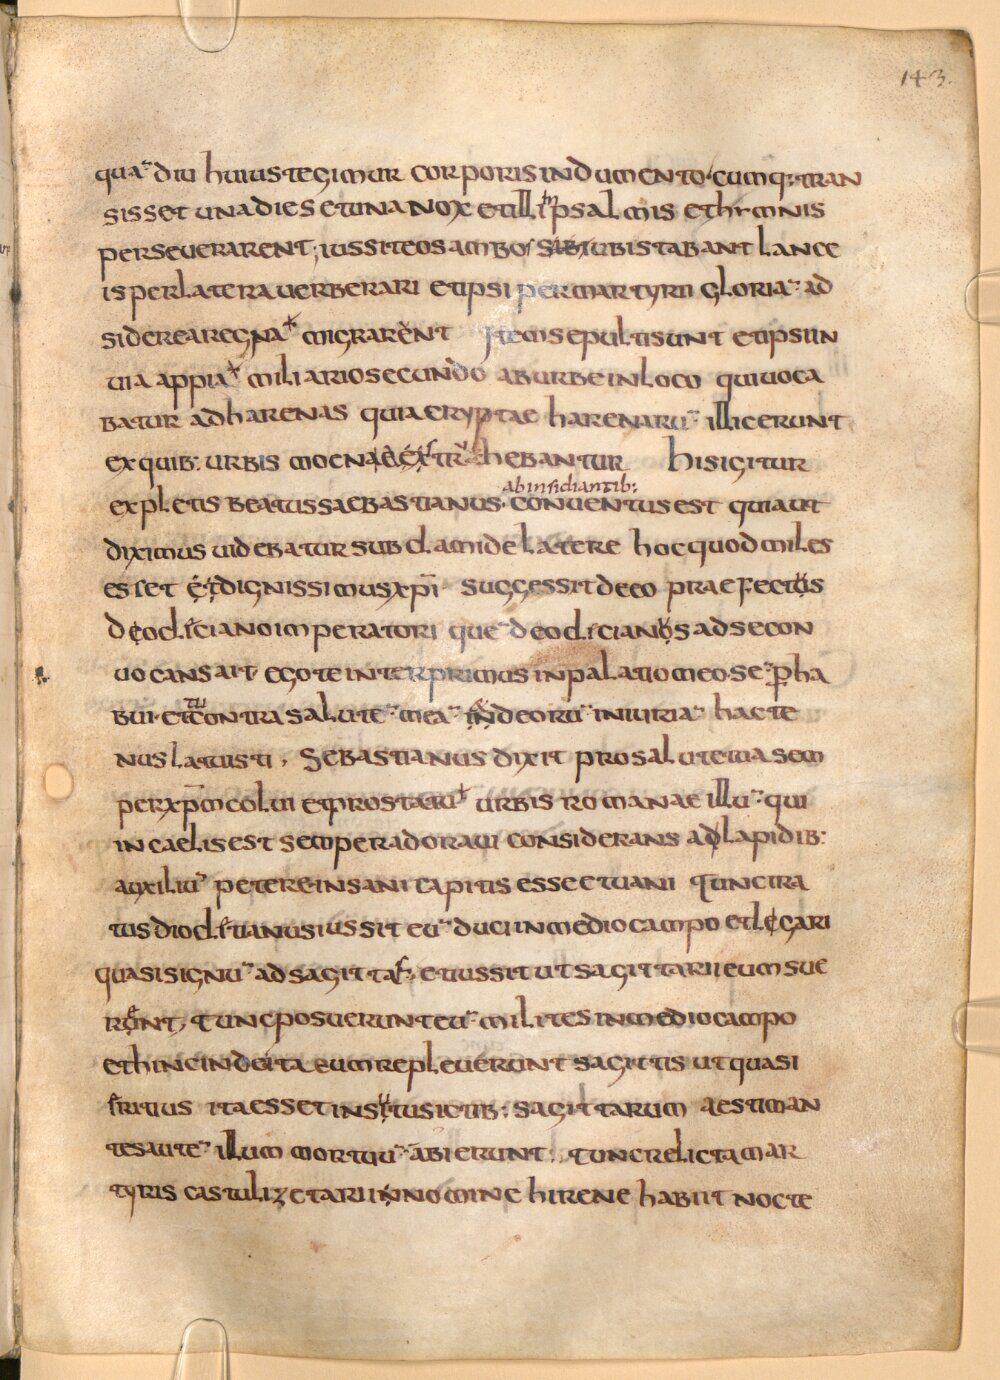 143.
qua᷃ diu huius tegimur corporis indumento cumq; tran
sisset una dies et una nox et illi in psalmis et hymnis
perseverarent; iussit eos ambos sibi ubi stabant lance
is per latera verberari et ipsi per martyrii gloria᷃ ad
siderea regna migrarent Item sepulti sunt et ipsi in
via appia miliario secundo ab urbe in loco qui voca
batur ad harenas quia cryptae harenaru᷃ illic erunt
ex quib: urbis moenia extrahebantur hisigitur
ab insidiantib:
expletis beatus saebastianus conventus est quia ut
diximus videbatur sub clamide latere hoc quod miles
esset et dignissimus xp̄i successit de eo praefectus
deocliciano imperatori que᷃ deoclicianus ad se con
vocans ait ego te inter primus in palatio meo se᷃p̄ ha
bui et tu contra salute᷃ mea᷃ in deoru᷃ iniuria᷃ hacte
nus latuisti, Sebastianus dixit pro salute tua sem
per xp̄m colui et pro statu urbis romanae illu᷃ qui
in caelis est semper adoravi considerans ad lapidib:
auxiliu᷃ petere insani capitis esse et vani Tunc ira
tus dioclitianus iussit eu᷃ duci in medio campo et legari
quasi signu᷃ ad sagittas et iussit ut sagittarii eum sue
rent, Tunc posuerunt eu᷃ milites in medio campo
et hinc inde ita eum repleverunt sagittis ut quasi
iritius ita esset insutus ictib: sagittarum aestiman
tes aute᷃ illum mortuu᷃ abierunt. Tunc relicta mar
tyris castuli zetarii nomine hirene habiit nocte